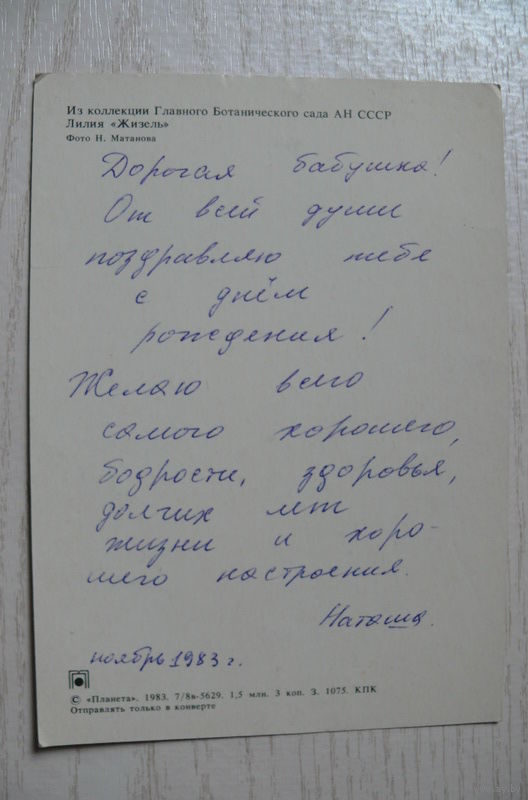 Из коллекции Главного Ботанического сада АН СССР
Лилия «Жизель»
Фото Н. Матанова
Дорогая бабушка!
От всей души
поздравляю тебе
с днём
рождения!
Желаю всего
самого хорошего,
бодрости, здоровья,
долгих лет
жизни и хоро-
шего настроения.
Наташа.
ноябрь 1983 г.
© «Планета». 1983. 7/8в-5629. 1,5 млн. 3 коп. З. 1075. КПК
Отправлять только в конверте